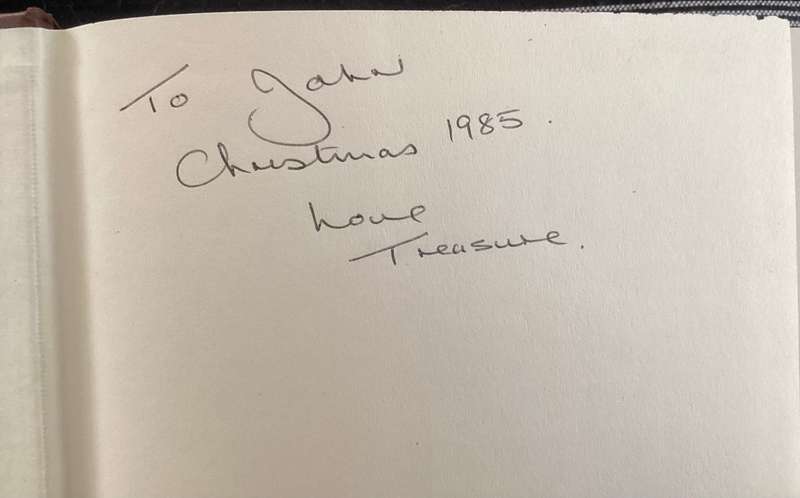 To John
Christmas 1985.
Love
Treasure.